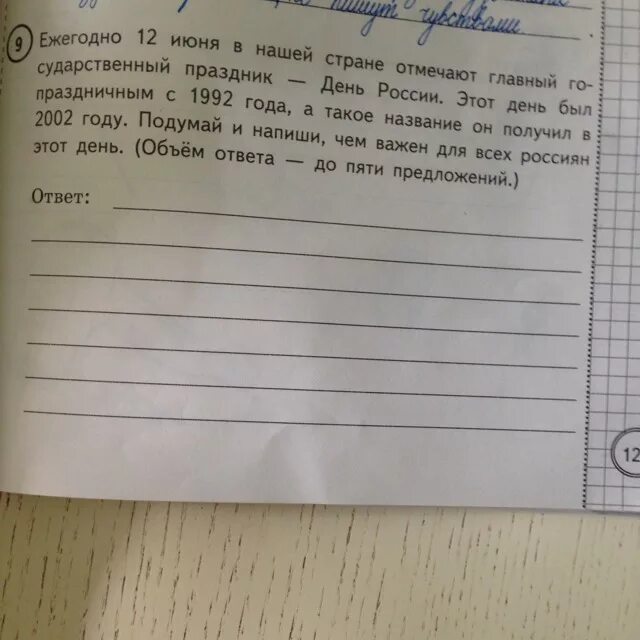 пишут чувствами.
9 Ежегодно 12 июня в нашей стране отмечают главный го-
сударственный праздник — День России. Этот день был
праздничным с 1992 года, а такое название он получил в
2002 году. Подумай и напиши, чем важен для всех россиян
этот день. (Объём ответа — до пяти предложений.)
Ответ:
12